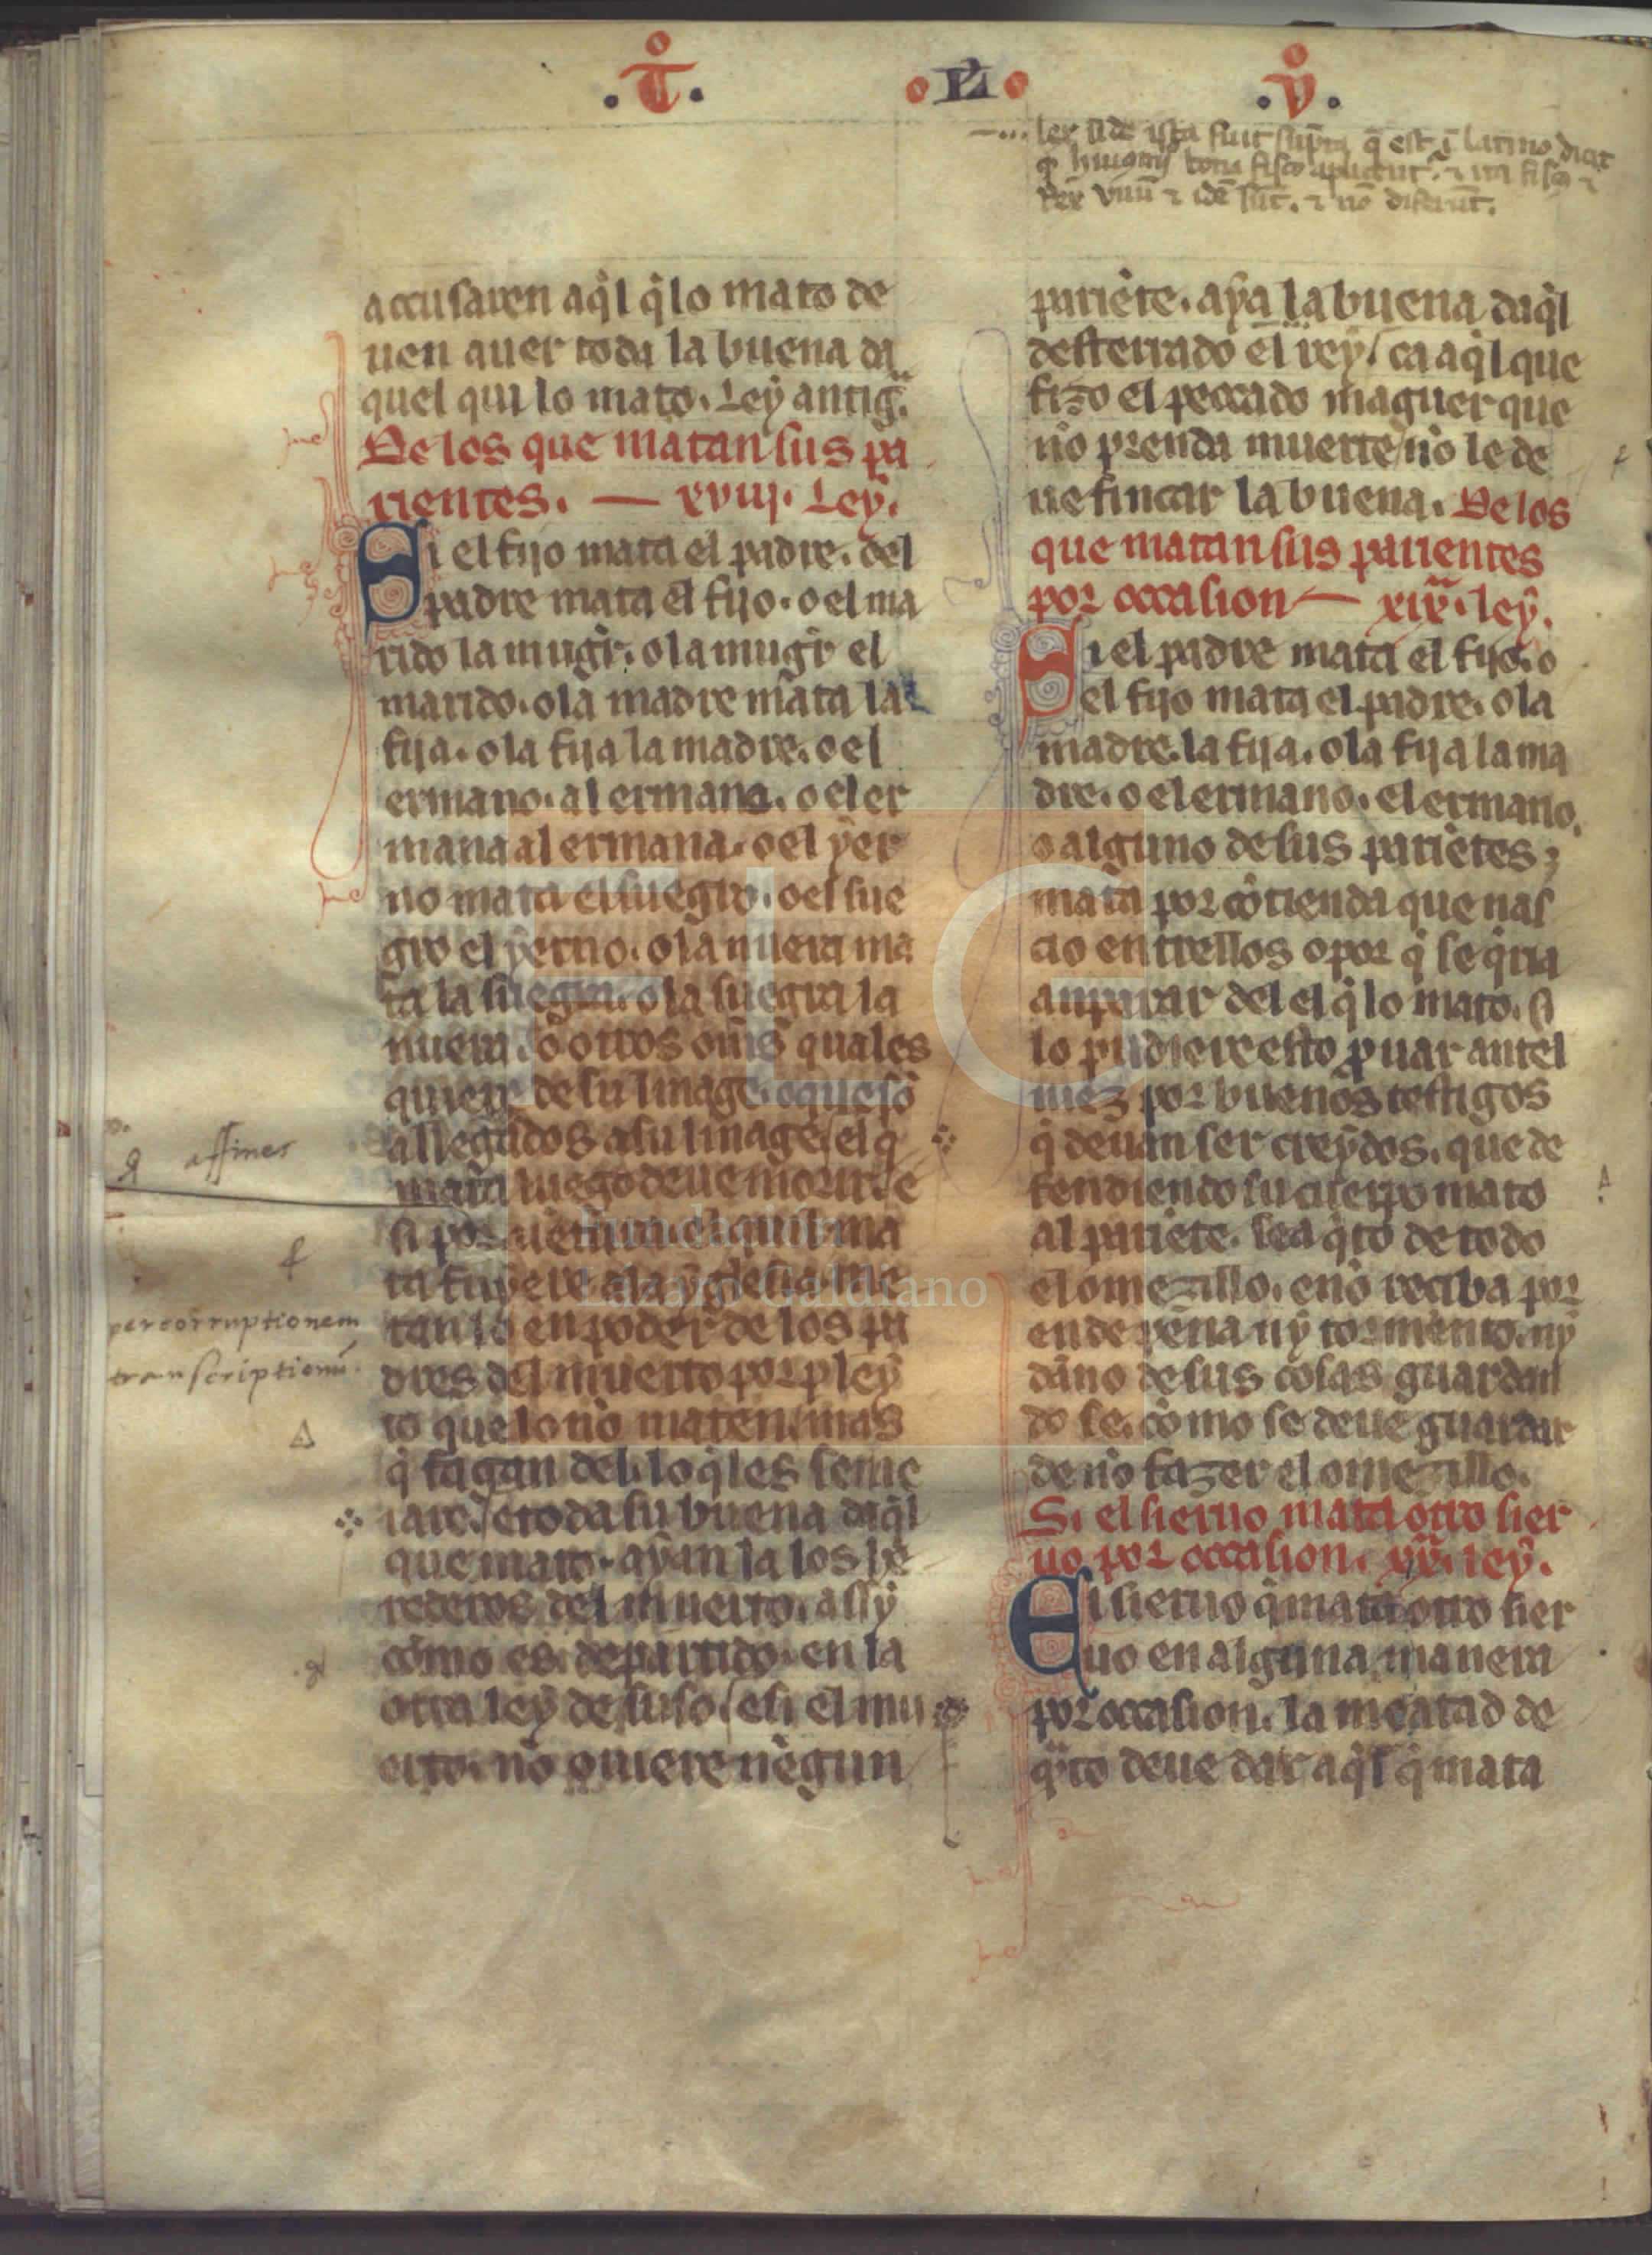 .T. L .V.
ley
est ĩ latino
Rex vnũ ⁊ idẽ sũt. ⁊ nõ diferũt.
accusaren aq̉l q̉ lo mato de
uen auer toda la buena da
quel qui lo mato. Ley antig̃.
De los que matan sus pa
rientes. — xviij. Ley.
Si el fijo mata el padre. del
padre mata el fijo. o el ma
rido la mugr̉. o la mugr̉ el
marido. o la madre mata la
fija. o la fija la madre. o el
ermano. al ermano. o el er
mana al ermana. o el yer
no mata el suegro. o el sue
gro el yerno. o la nuera ma
ta la suegra. o la suegra la
nuera. o otros om̃s quales
quier de su linage. o que sõ
allegados a su linage / el q̉
mata luego deue morir. e
si por uẽtura el qui l ma
ta fuyere a la yglesia. me
tan lo en poder de los pa
dres del muerto por pley
to que lo nõ maten. mas
q̉ fagan del. lo q̉ les seme
iare. / e toda su buena daq̉l
que mato. ayan la los he
rederos del muerto. assy
cõmo es departido en la
otra ley de suso. / e si el mu
erto. nõ ouiere nẽgun
affines
per corruptionem
transcriptionũ.
pariẽte. aya la buena daq̉l
desterrado el rey / ca aq̉l que
fizo el peccado maguer que
nõ prenda muerte / nõ le de
ue fincar la buena. De los
que matan sus parientes
por occasion — xix. ley.
Si el padre mata el fijo. o
el fijo mata el padre. o la
madre. la fija. o la fija la ma
dre. o el ermano. el ermano.
o alguno de sus pariẽtes;
mata por cõtienda que nas
cio entrellos o por q̉ se q̉ria
anparar del el q̉ lo mato. si
lo pudiere esto ꝓuar antel
iuez por buenos testigos
q̉ deuan ser creydos. que de
fendiendo su cuerpo mato
al pariẽte. sea q̉to de todo
el omezillo. e nõ reciba por
ende pena ny tormẽnto. ny
dãno de sus cosas guardan
do se. cõmo se deue guardar
de nõ fazer el omezillo.
Si el sieruo mata otro sier
uo por occasion. xx. ley.
El sieruo q̉ mata otro sier
uo en alguna manera
por occasion. la meatad de
q̉to deue dar aq̉l q̉ mata
FLG
Fundación
Lázaro Galdiano